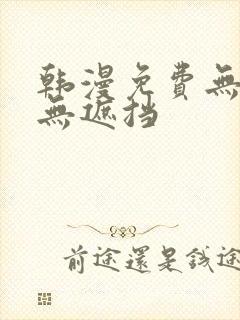 韩漫免费無
無遮挡
前途還是錢途